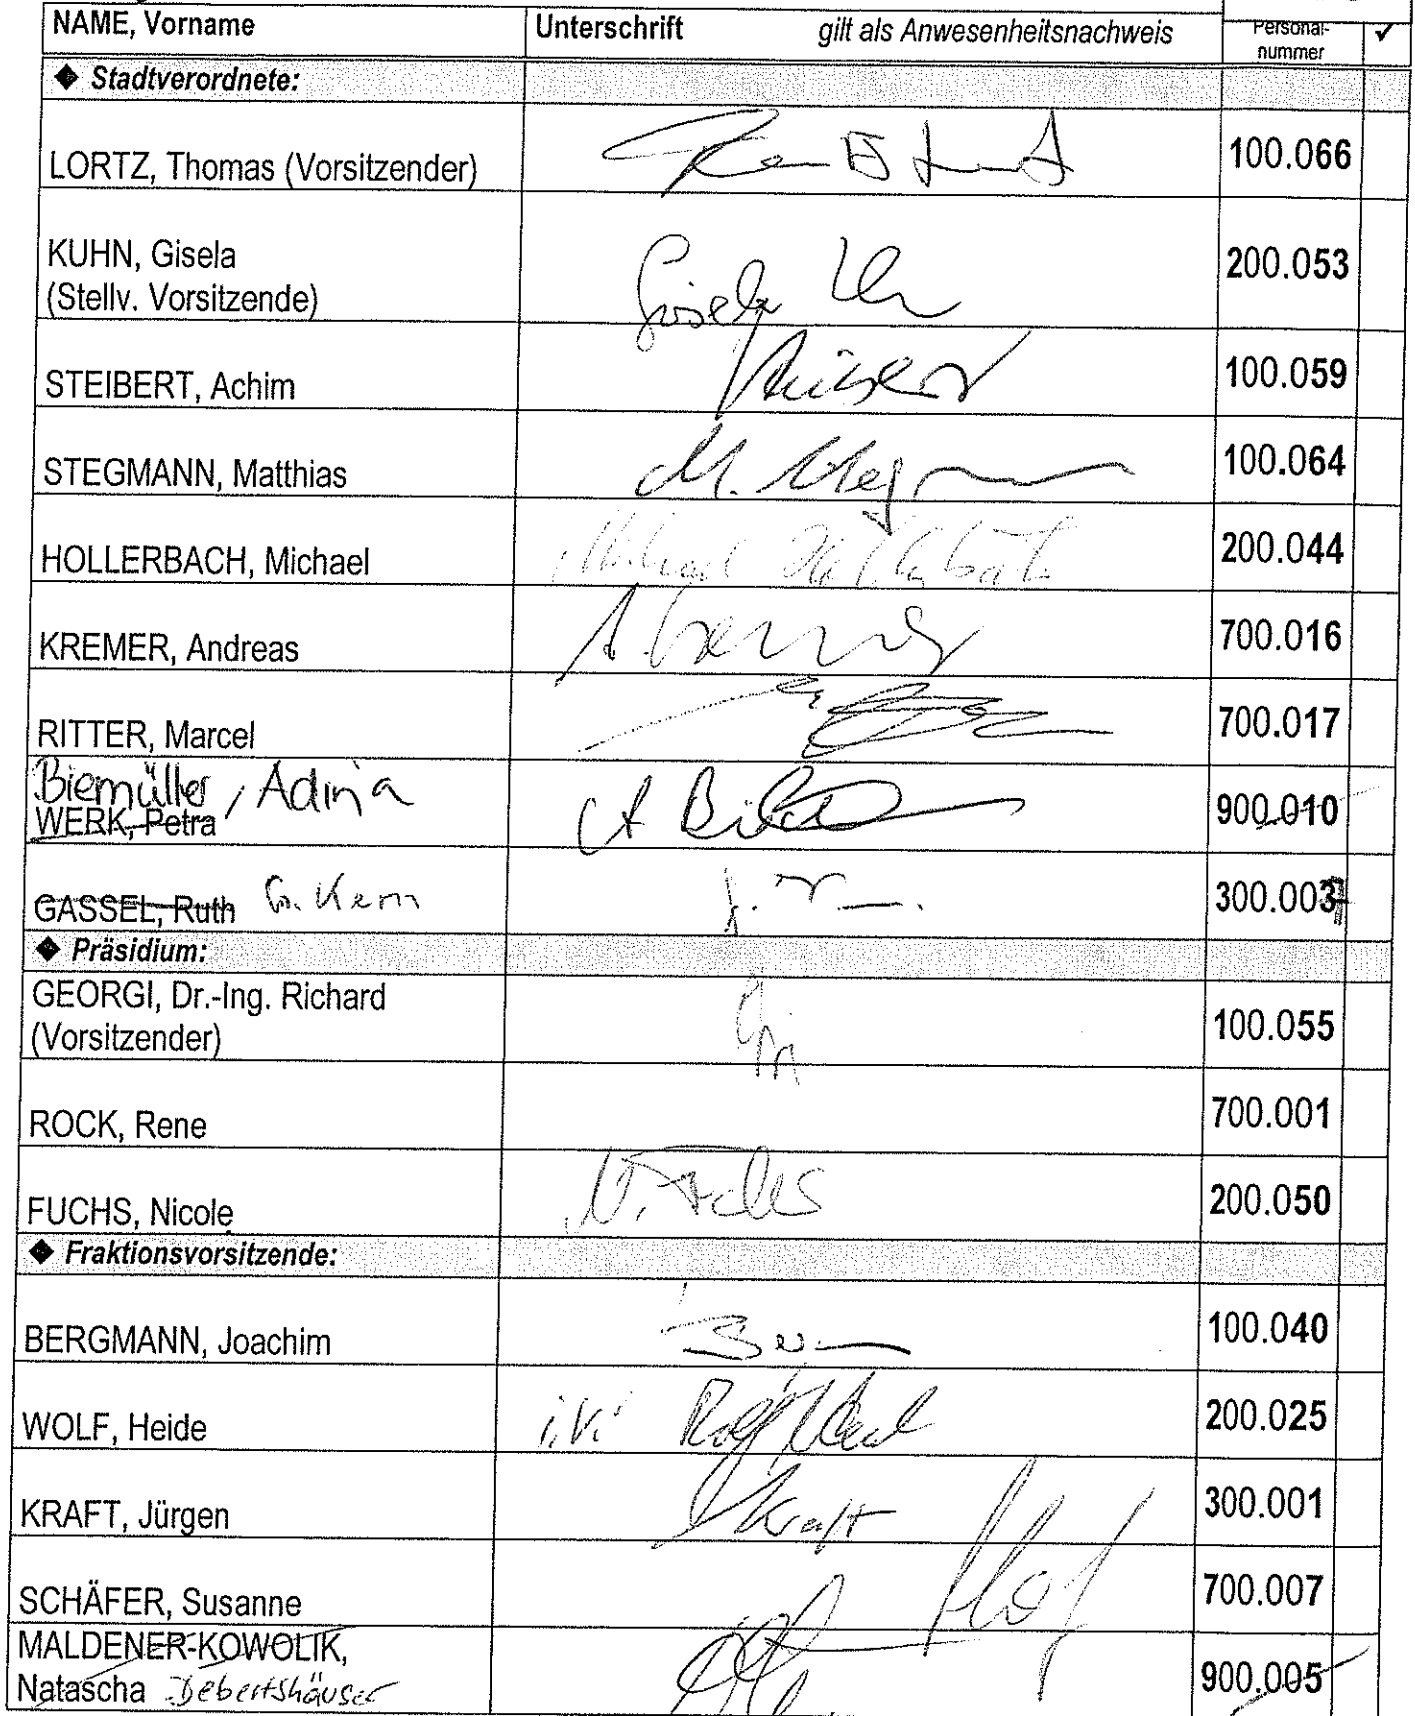 NAME, Vorname Unterschrift gilt als Anwesenheitsnachweis Personal- ✓
nummer
◆ Stadtverordnete:
LORTZ, Thomas (Vorsitzender) 100.066
KUHN, Gisela
(Stellv. Vorsitzende) Gisela 200.053
STEIBERT, Achim 100.059
STEGMANN, Matthias M. Stegmann 100.064
HOLLERBACH, Michael Michael Hollerbach 200.044
KREMER, Andreas A. Kremer 700.016
RITTER, Marcel 700.017
Biemüller, Adina
WERK, Petra A 900.010
GASSEL, Ruth G. Kern 300.003
◆ Präsidium:
GEORGI, Dr.-Ing. Richard
(Vorsitzender) 100.055
ROCK, Rene 700.001
FUCHS, Nicole N. Fuchs 200.050
◆ Fraktionsvorsitzende:
BERGMANN, Joachim 100.040
WOLF, Heide i.V. Rolf 200.025
KRAFT, Jürgen Kraft 300.001
SCHÄFER, Susanne 700.007
MALDENER-KOWOLIK,
Natascha Debertshäuser 900.005